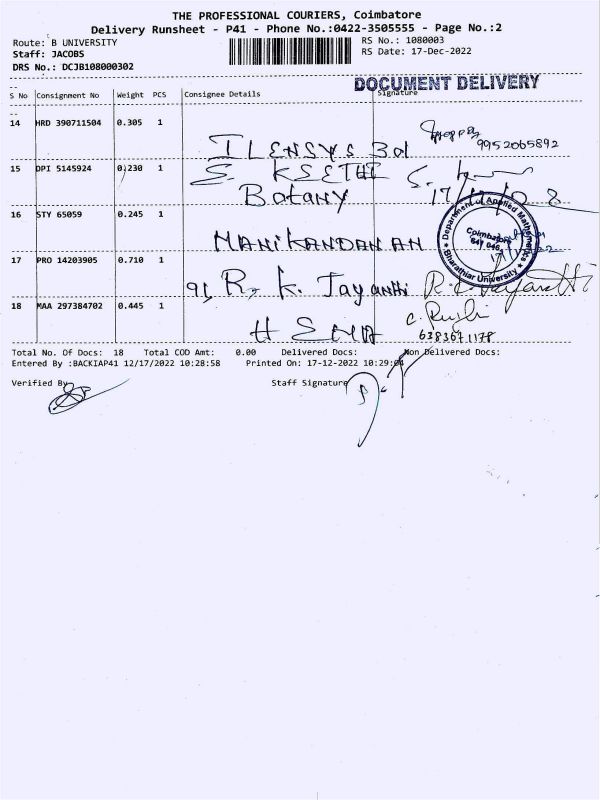 THE PROFESSIONAL COURIERS, Coimbatore
Delivery Runsheet - P41 - Phone No.:0422-3505555 - Page No.:2
Route: B UNIVERSITY
RS No.: 1080003
Staff: JACOBS
RS Date: 17-Dec-2022
DRS No.: DCJB108000302
DOCUMENT DELIVERY
S No Consignment No Weight PCS Consignee Details Signature
14 HRD 390711504 0.305 1
9952065892
ILENSYS 3d
15 DPI 5145924 0.230 1
S. KSETHI
Botany
16 STY 65059 0.245 1
Department of Applied Mathematics
Coimbatore
641 046
Bharathiar University
MANIKANDAN AN
17 PRO 14203905 0.710 1
R. K. Jayanthi
18 MAA 297384702 0.445 1
HEMA
6383671178
Total No. Of Docs: 18 Total COD Amt: 0.00 Delivered Docs: Non Delivered Docs:
Entered By :BACKIAP41 12/17/2022 10:28:58 Printed On: 17-12-2022 10:29:04
Verified By
Staff Signature